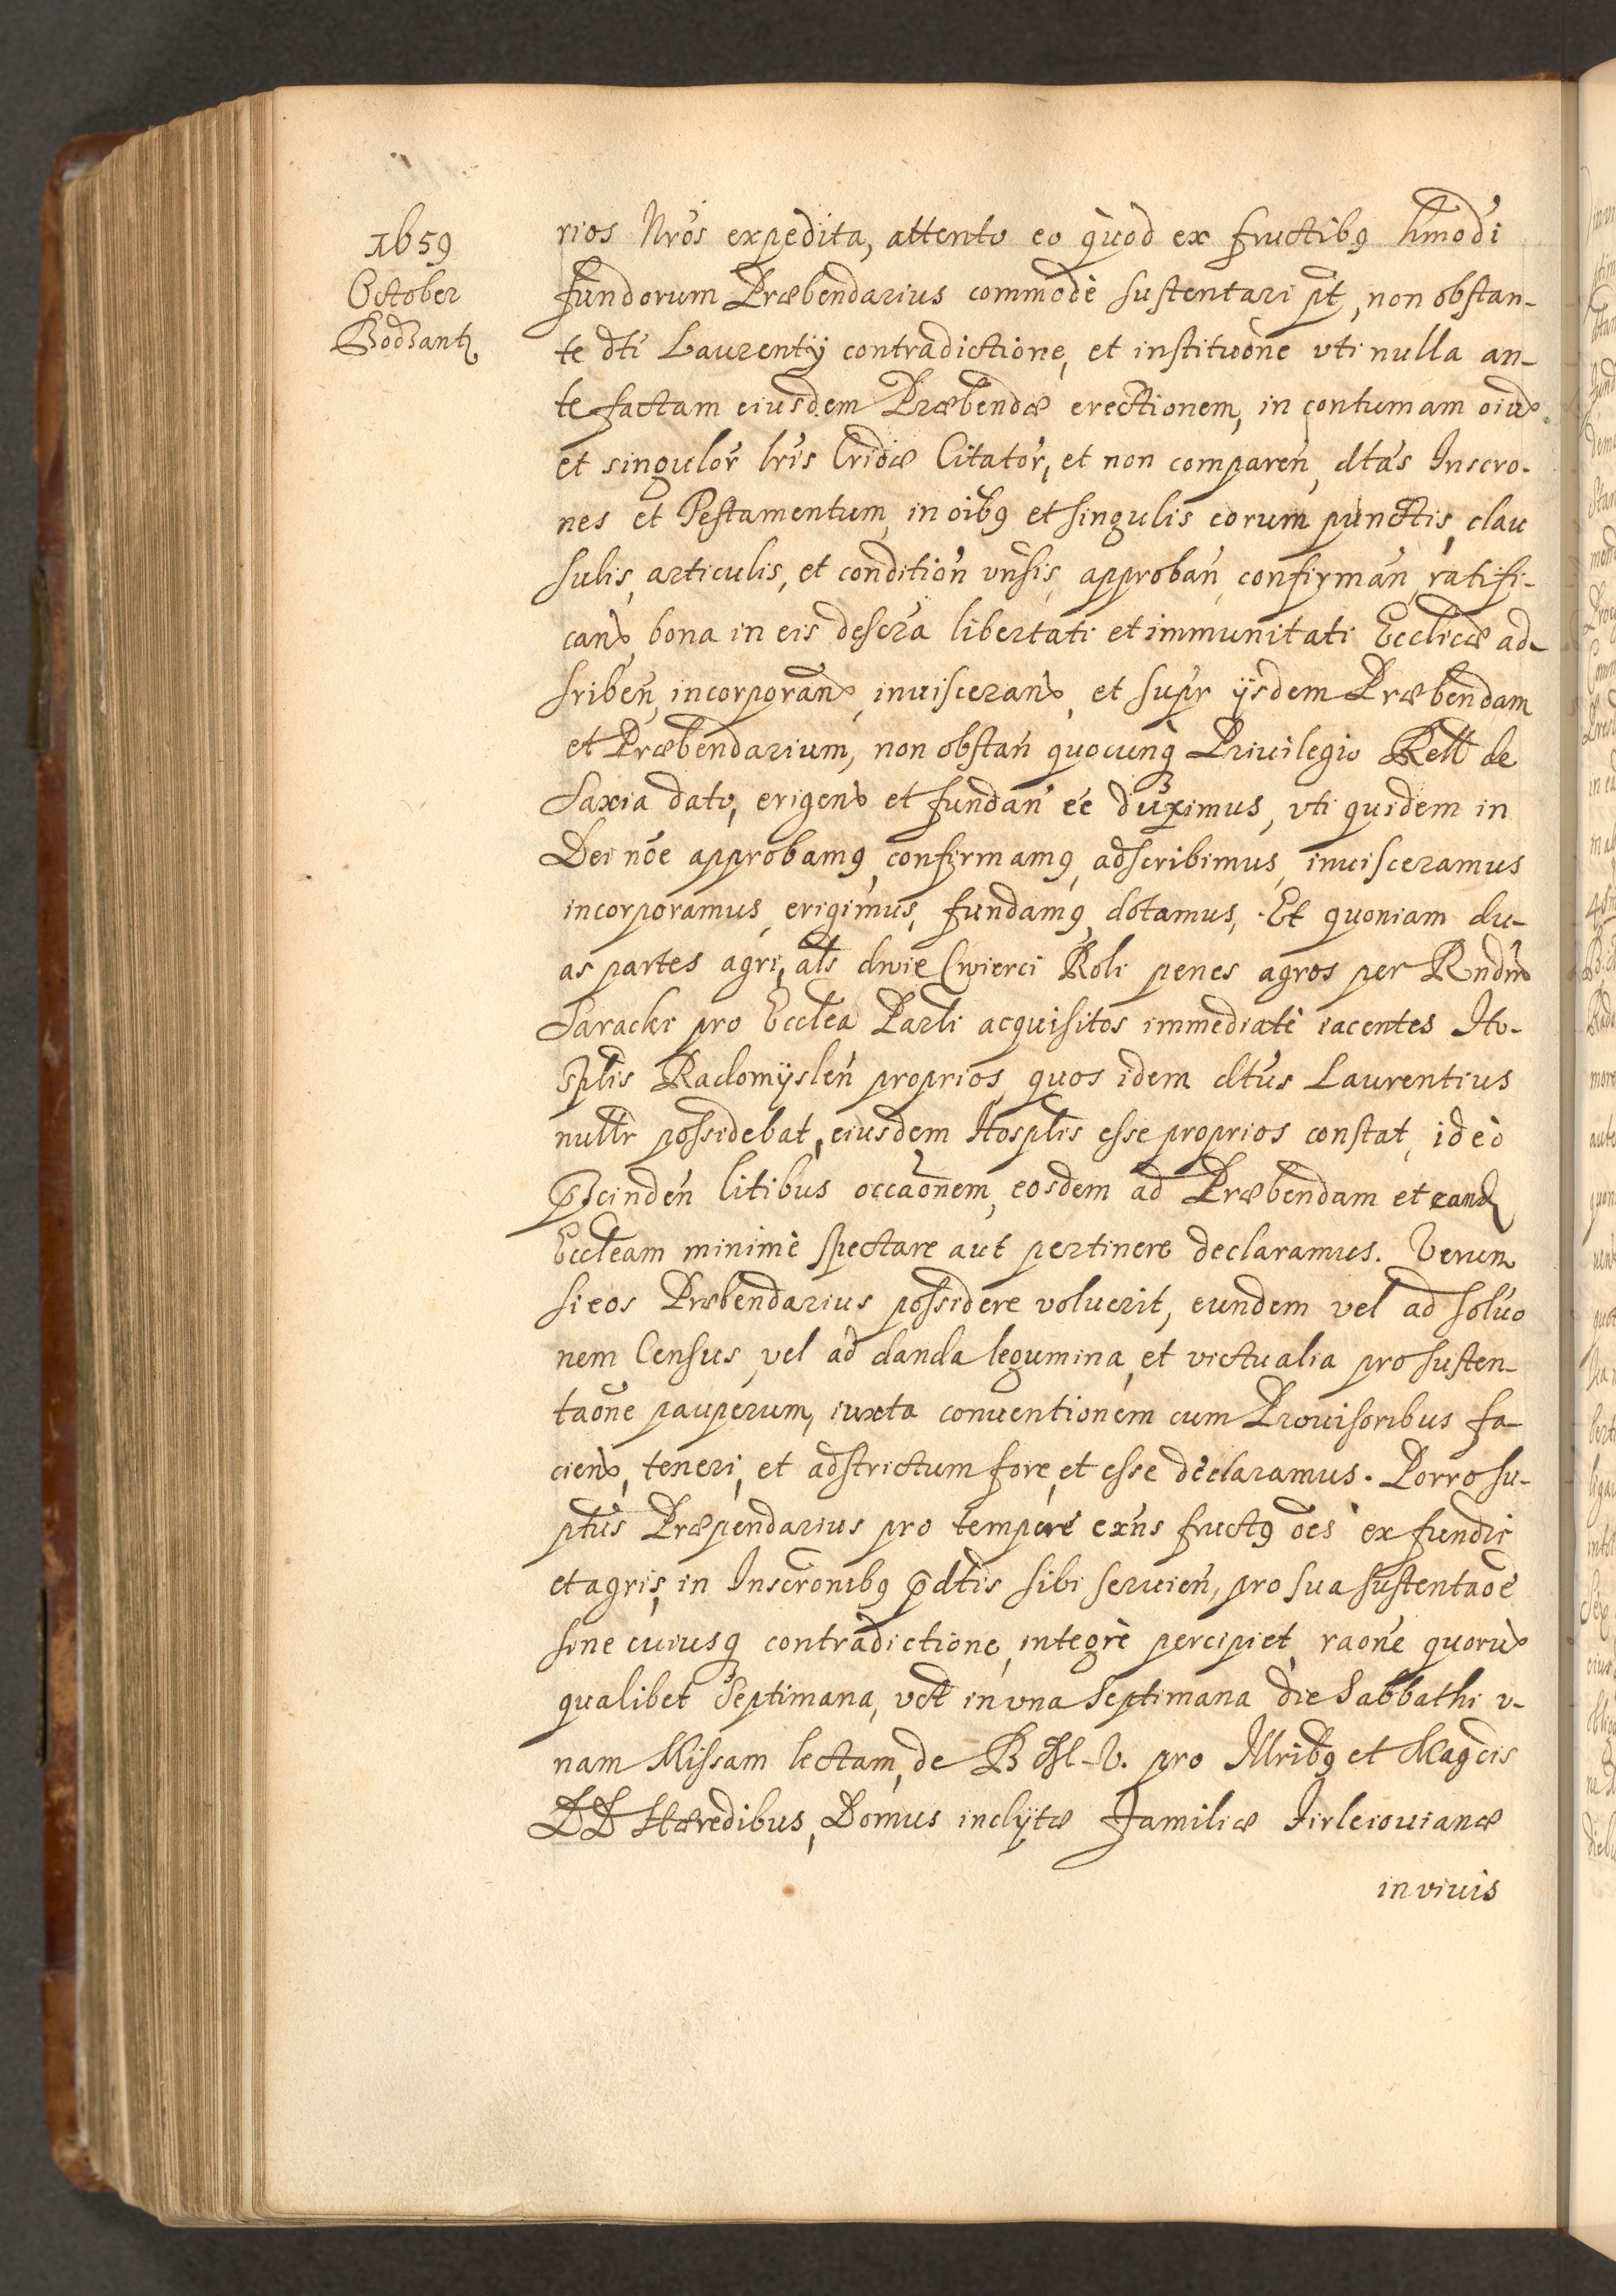 1659
October
Bodzantz
rios Nrós expedita, attento eo quòd ex fructibg hmodi
fundorum Præbendarius commodè sustentari pt, non obstan-
te dti Laurentÿ contradictione, et institvone vti nulla an-
te factam eiusdem Præbendæ erectionem, in contumam oium
et singulor lris Cridæ Citator, et non comparen, dtas Inscro-
nes et Testamentum, in oibg et singulis eorum punctis, clau
sulis, articulis, et condition vnsis, approban, confirman, ratifi-
can, bona in eis descra libertati et immunitati Ecclicæ ad-
sriben, incorporan, inuisceran, et supr ÿsdem Præbendam
et Præbendarium, non obstan quocunq Priuilegio Rell de
Saxia dato, erigen et fundan ee duximus, vti quidem in
Dei nóe approbamg, confirmamg, adscribimus, inuisceramus
incorporamus, erigimus, fundamg, dotamus, Et quoniam du-
as partes agri, als dwie Cwierci Roli penes agros per Rndm
Saracki pro Ecclea Parli acquisitos immediatè iacentes Ho-
splis Radomÿslen proprios, quos idem dtus Laurentius
nullr possidebat, eiusdem Hosplis esse proprios constat, ideò
pscinden litibus occaonem, eosdem ad Præbendam et eand
Eccleam minimè spectare aut pertinere declaramus. Verum
si eos Præbendarius possidere voluerit, eundem vel ad soluo
nem Census, vel ad danda legumina, et victualia pro susten-
taone pauperum, iuxta conuentionem cum Prouisoribus fa-
cien, teneri, et adstrictum fore, et esse declaramus. Porro su-
ptus Præpendarius pro tempore exns fructg oes ex fundis
et agris, in Inscronibg pdtis sibi seruien, pro sua sustentaoe
sine cuiusq contradictione, integrè percipiet, raone quorum
qualibet Septimana, vdt in vna Septimana die Sabbathi v-
nam Missam lectam, de B V. pro Illribg et Magcis
DD Hæredibus, Domus inclÿtæ Familiæ Firleiouianæ
in viuis